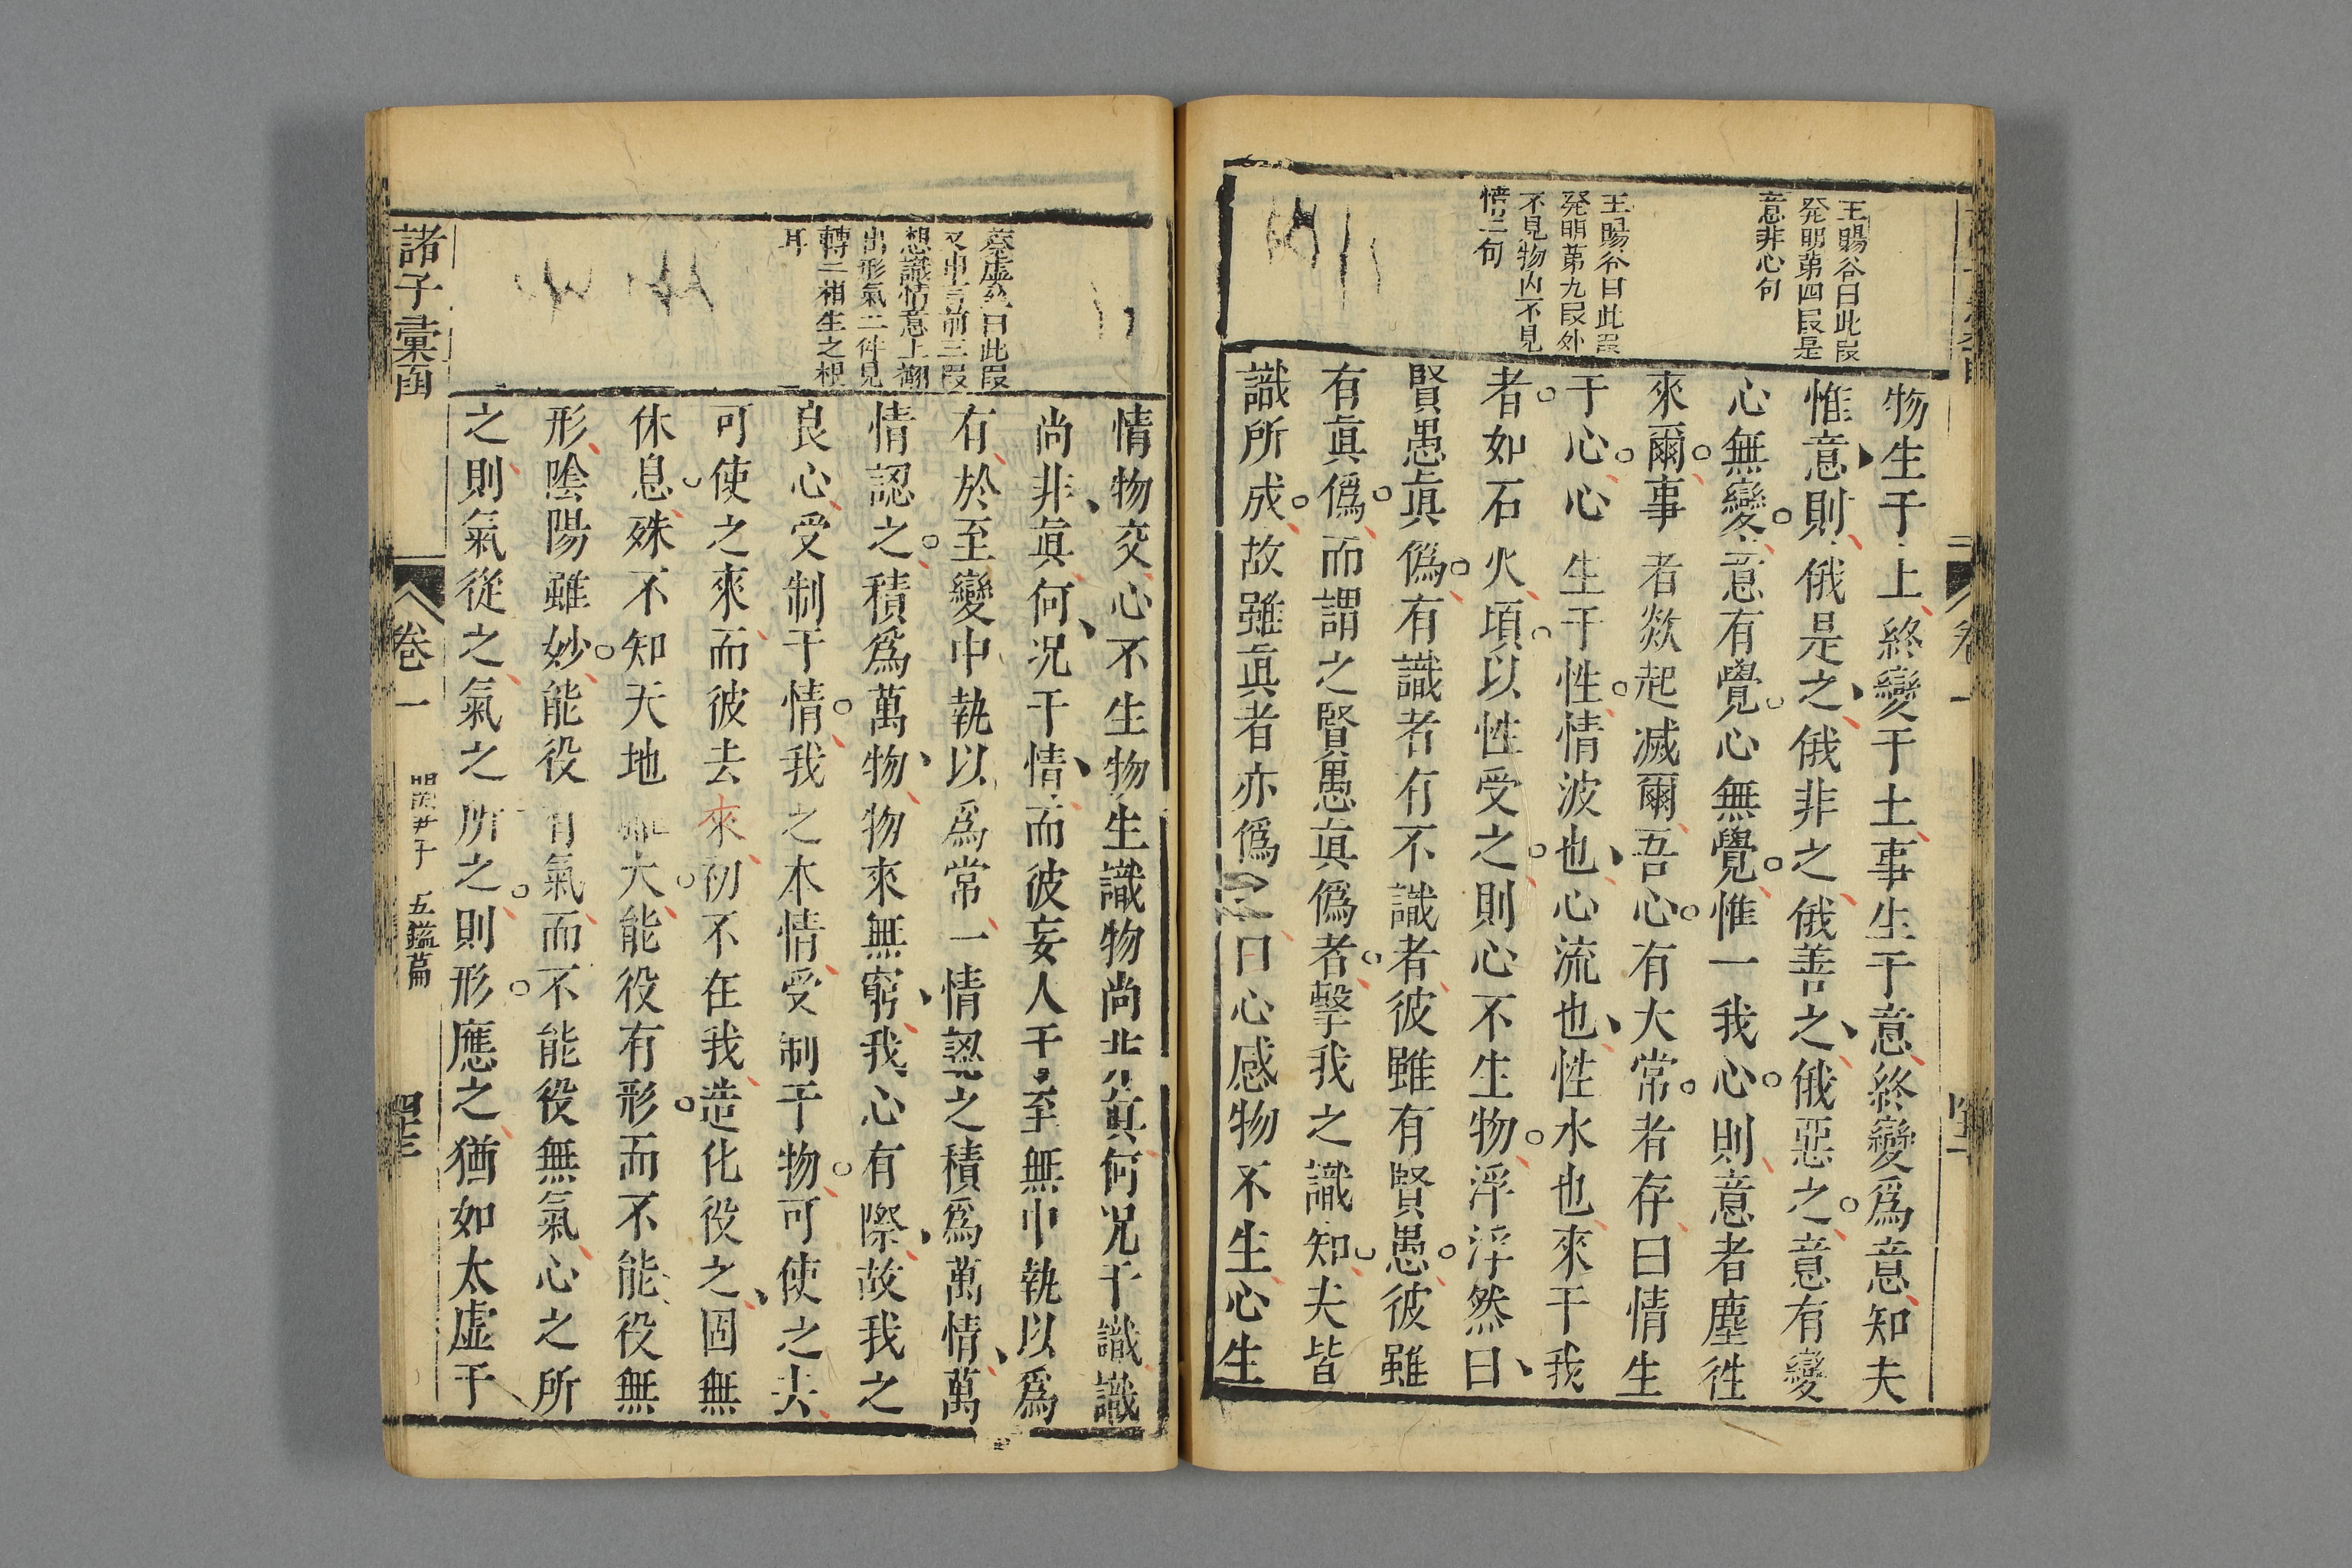 王賜谷曰此叚
発明第四叚是
意非心句
王賜谷曰此叚
発明第九叚外
不見物内不見
情二句
物生于土終變于土事生于意終變爲意知夫
惟意則俄是之俄非之俄善之俄惡之意有變
心無變意有覺心無覺惟一我心則意者塵徃
來爾事者欻起滅爾吾心有大常者存曰情生
于心心生于性情波也心流也性水也來干我
者如石火頃以性受之則心不生物浮浮然曰
賢愚眞僞有識者有不識者彼雖有賢愚彼雖
有眞僞而謂之賢愚眞僞者擊我之識知夫皆
識所成故雖眞者亦僞之曰心感物不生心生
虛公曰此叚
又申言前三叚
想識情意上翻
出形氣二件見
轉二相生之根
耳
情物交心不生物生識物尚非眞何况于識識
尚非眞何况于情而彼妄人于至無中執以爲
有於至變中執以爲常一情認之積爲萬情萬
情認之積爲萬物物來無窮我心有際故我之
良心受制于情我之本情受制于物可使之去
可使之來而彼去來初不在我造化役之固無
休息殊不知天地雖大能役有形而不能役無
形陰陽雖妙能役有氣而不能役無氣心之所
之則氣從之氣之所之則形應之猶如太虛于
諸子彙函
卷一
關尹子 五鑑篇
四十三